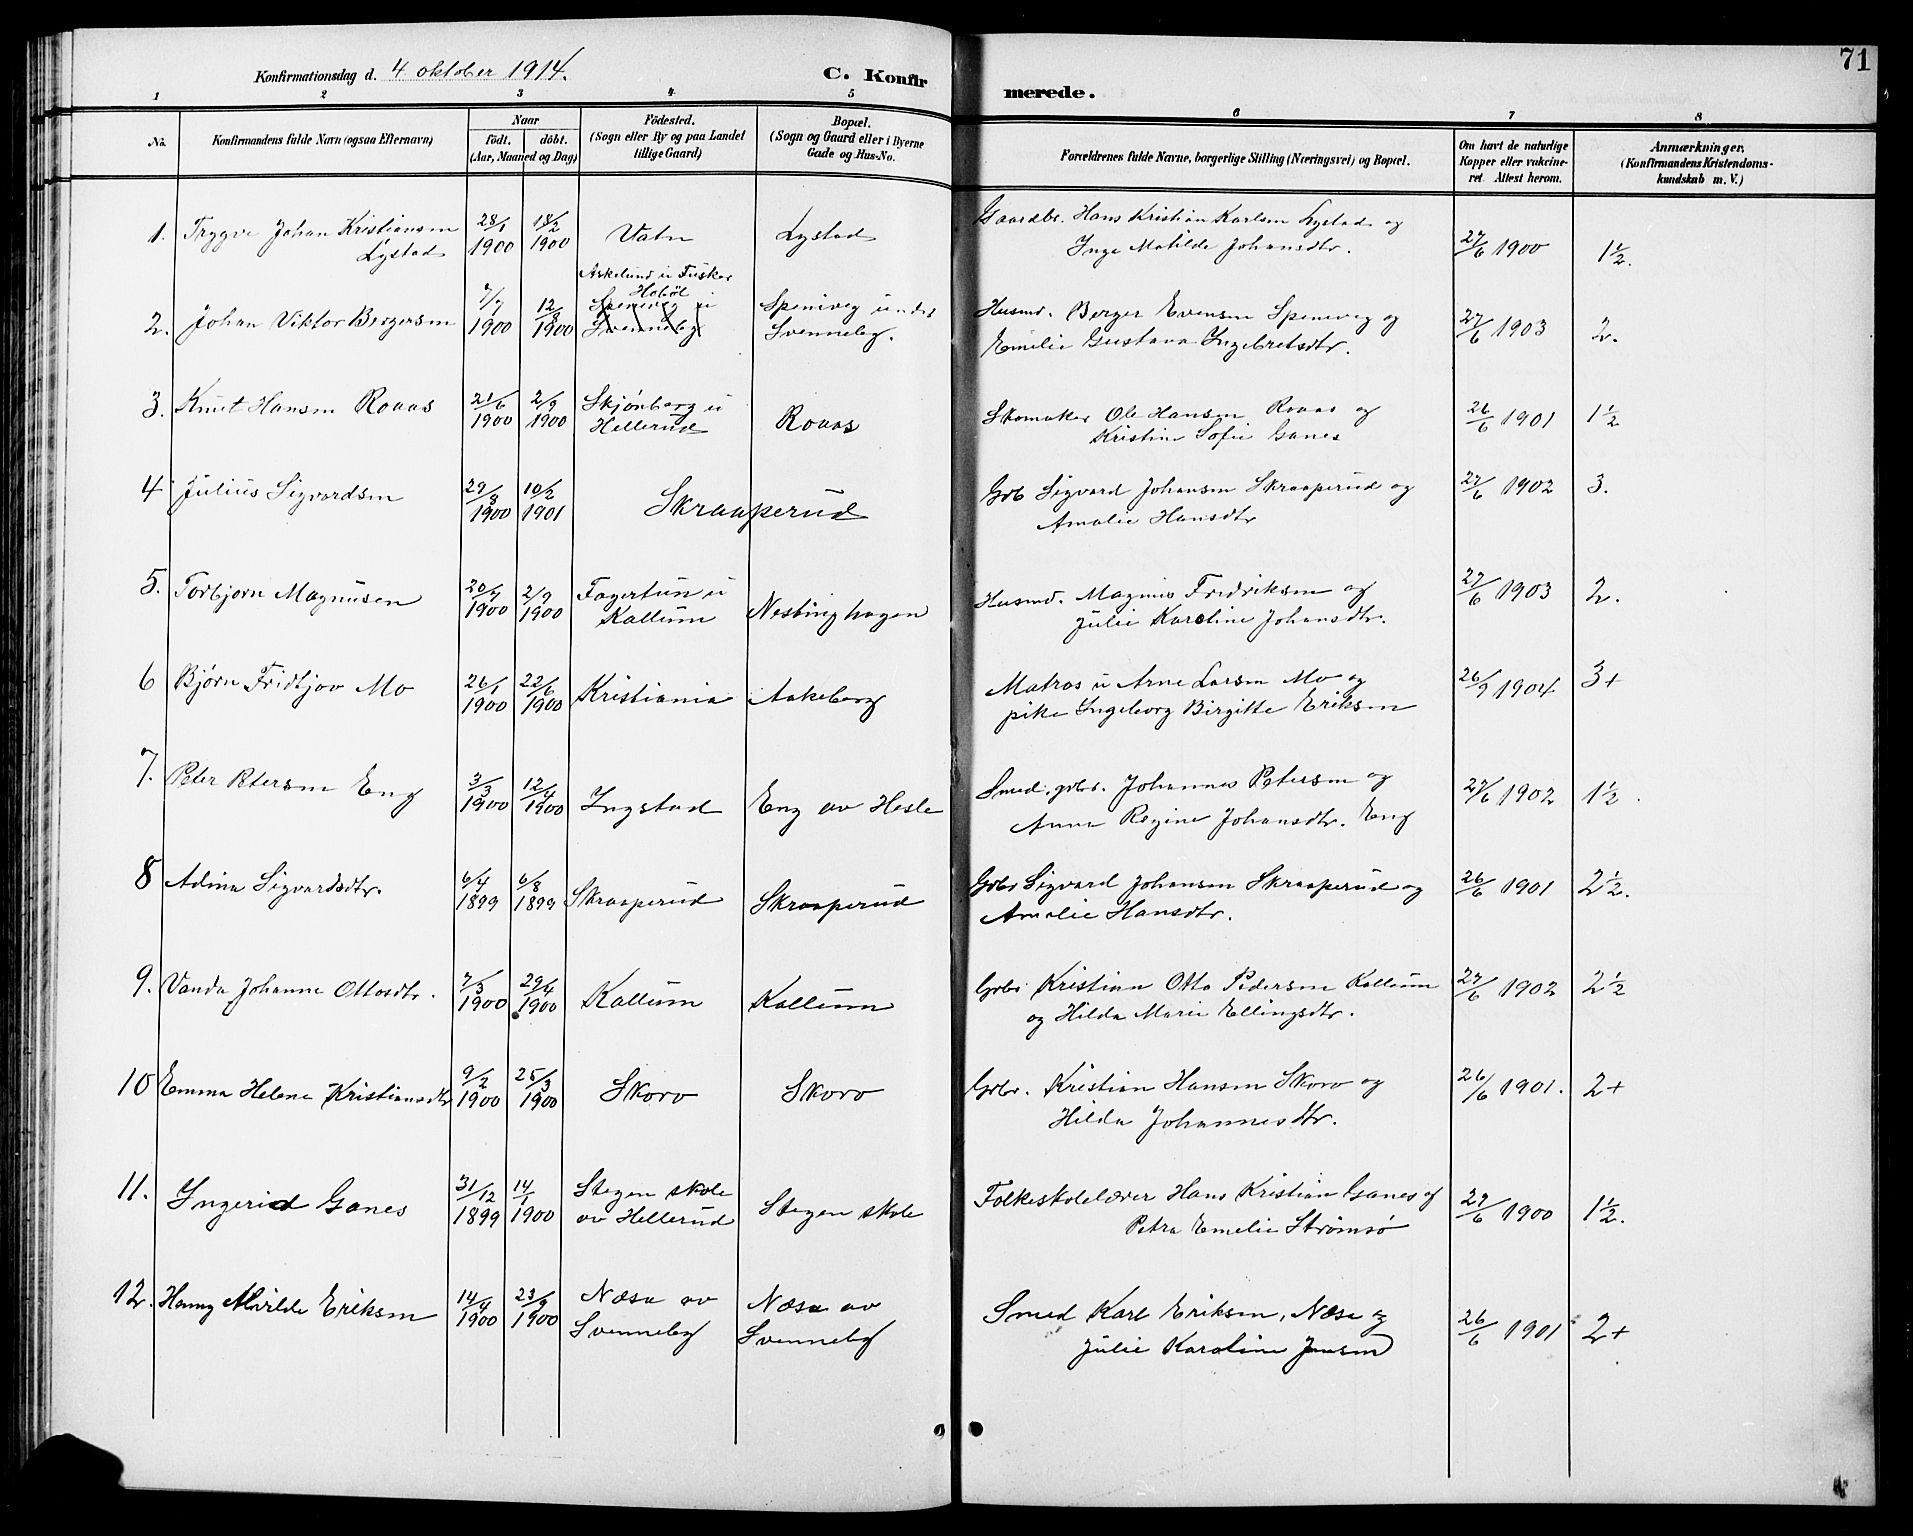 71
Konfirmationsdag d. 4 oktober 1914.
C. Konfirmerede.
1 2 3 4 5 6 7 8
No.
Konfirmandens fulde Navn (ogsaa Efternavn)
Naar
födt. döbt.
(Aar, Maaned og Dag)
Födested.
(Sogn eller By og paa Landet
tillige Gaard)
Bopæl.
(Sogn og Gaard eller i Byerne
Gade og Hus-No.
Forældrenes fulde Navne, borgerlige Stilling (Næringsvei) og Bopæl.
Om havt de naturlige
Kopper eller vakcine-
ret Attest herom.
Anmærkninger.
(Konfirmandens Kristendoms-
kundskab m. V.)
1. Trygve Johan Kristiansen
Lystad
28/1 1900 18/2 1900 Vatn Lystad
Gaardbr. Hans Kristian Karlsen Lystad og
Inga Matilde Johansdtr.
27/6 1900 1½.
2. Johan Viktor Bergersen
7/7 1900 12/8 1900
Askelund u Tusker
Hobøl
Speneveg u
Svenneby
Speniveg under
Svenneby.
Husmd. Berger Evensen Speneveg og
Emilie Gustava Ingebretsdtr.
27/6 1903 2.
3. Knut Hansen Roaas
21/6 1900 2/9 1900
Skjønberg u
Hellerud
Roaas
Skomaker Ole Hansen Roaas og
Kristine Sofie Ganes
26/6 1901 1½
4 Julius Sigvardsen
29/8 1900 10/2 1901 Skraaperud
Grb Sigvard Johansen Skraaperud og
Amalie Hansdtr
27/6 1902 3.
5. Torbjørn Magnusen
20/7 1900 2/9 1900
Fagertun u
Kallum
Nestinghagen
Husmd. Magnus Fredriksen og
Julie Karoline Johansdtr.
27/6 1903 2.
6 Bjørn Fridtjov Mo
26/1 1900 22/6 1900 Kristiania Aakeberg
Matros u Arne Larsen Mo og
pike Ingeborg Birgitte Eriksen
26/9 1904 3+
7. Peter Petersen Eng
3/3 1900 12/4 1900 Ingstad Eng av Hesle
Smed, grbr. Johannes Petersen og
Anne Regine Johansdtr. Eng
27/6 1902 1½.
8 Adina Sigvardsdtr.
6/4 1899 6/8 1899 Skraaperud Skraaperud
Grbr Sigvard Johansen Skraaperud og
Amalie Hansdtr.
26/6 1901 2½.
9. Vanda Johanne Ottosdtr.
7/3 1900 29/4 1900 Kallum Kallum
Grbr Kristian Otto Pedersen Kallum
og Hilda Marie Ellingsdtr.
27/6 1902 2½
10 Emma Helene Kristiansdtr
9/2 1900 25/3 1900 Skoro Skoro
Grbr. Kristian Hansen Skoro og
Hilda Johannesdtr.
26/6 1901. 2+
11. Ingerid Ganes
31/12 1899 14/1 1900
Stegen skole
av Hellerud
Stegen skole
Folkeskolelærer Hans Kristian Ganes og
Petra Emelie Strømsø
27/6 1900 1½.
12. Hanny Alvilde Eriksen
14/4 1900 23/9 1900
Næsa av
Svenneby
Næsa av
Svenneby
Smed Karl Eriksen, Næsa og
Julie Karoline Jensen
26/6 1901 2+